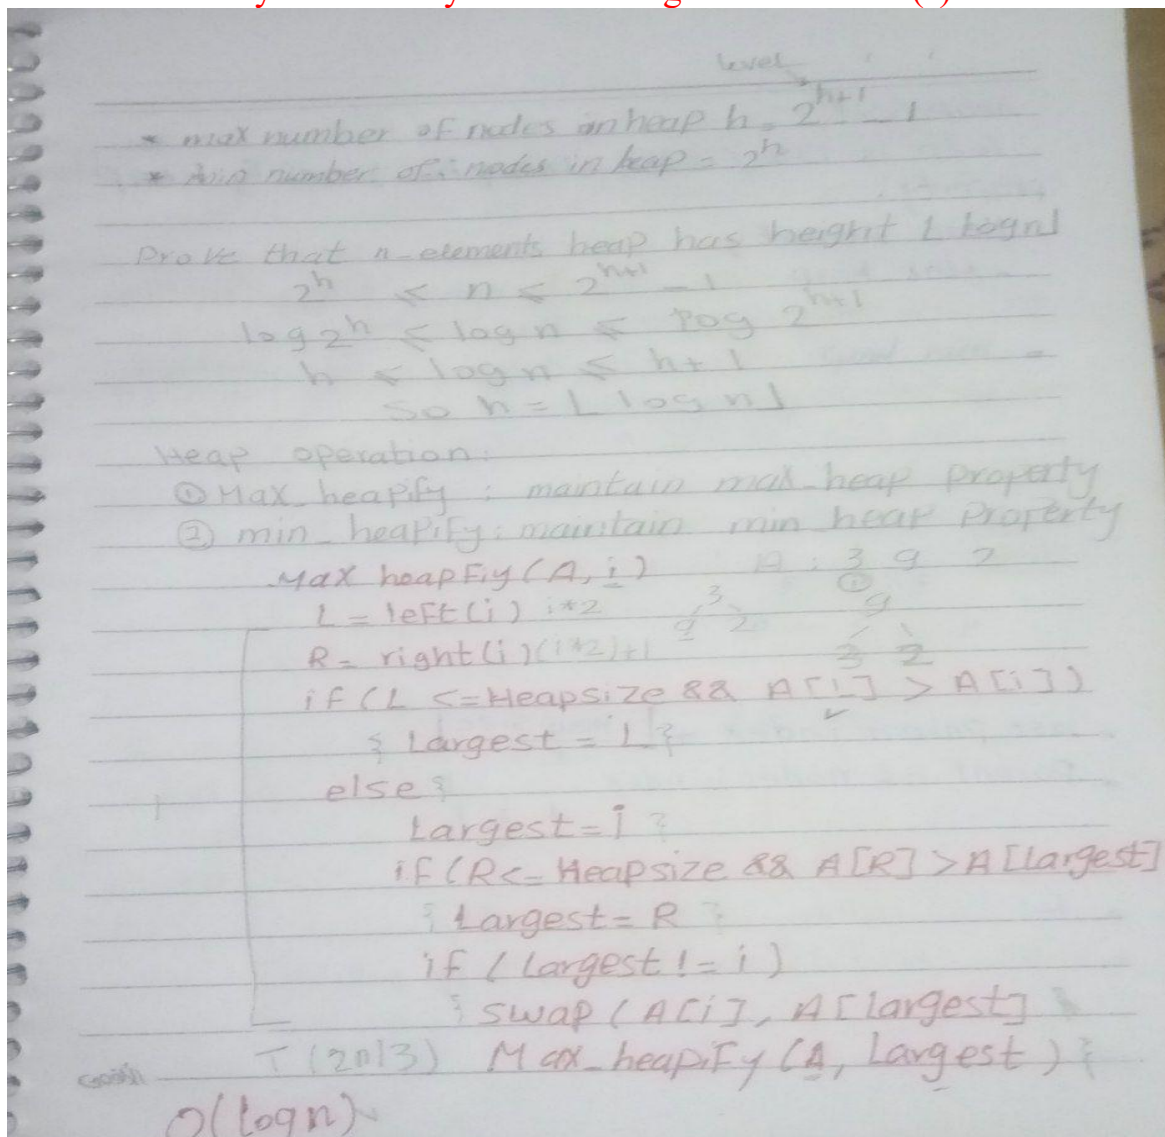 level
* max number of nodes in heap h = 2^(h+1) - 1
* min number of nodes in heap = 2^h
Prove that n-elements heap has height ⌊logn⌋
2^h ≤ n ≤ 2^(h+1) - 1
log 2^h ≤ log n ≤ log 2^(h+1)
h ≤ log n ≤ h+1
So h = ⌊log n⌋
Heap operation:
① Max_heapify : maintain max_heap property
② min_heapify : maintain min heap property
Max heapFiy (A, i) A : 3 9 2
L = left(i) i*2 3 9 2 ① 9
R = right(i) (i*2)+1 3 2
if (L <= Heapsize && A[L] > A[i])
{ Largest = L }
else {
Largest = i }
if (R <= Heapsize && A[R] > A[Largest]
{ Largest = R }
if (Largest != i)
{ swap (A[i], A[largest]
T(2n/3) Max_heapify (A, Largest) }
O(logn)